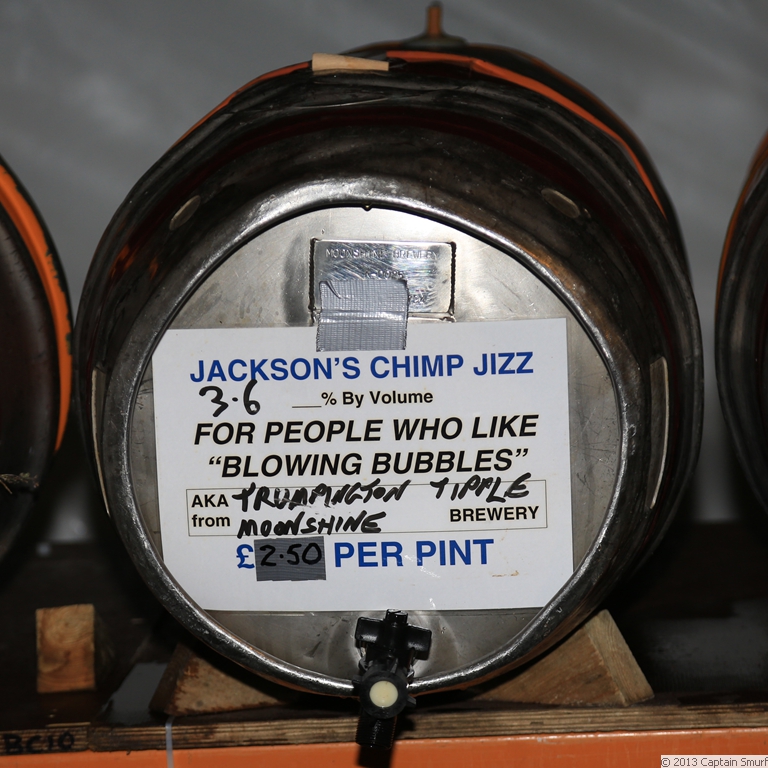 MOONSHINE BREWERY
JACKSON'S CHIMP JIZZ
3.6
___% By Volume
FOR PEOPLE WHO LIKE
“BLOWING BUBBLES”
AKA TRUMPINGTON TIPPLE
from MOONSHINE BREWERY
£2.50 PER PINT
BC10
© 2013 Captain Smurf